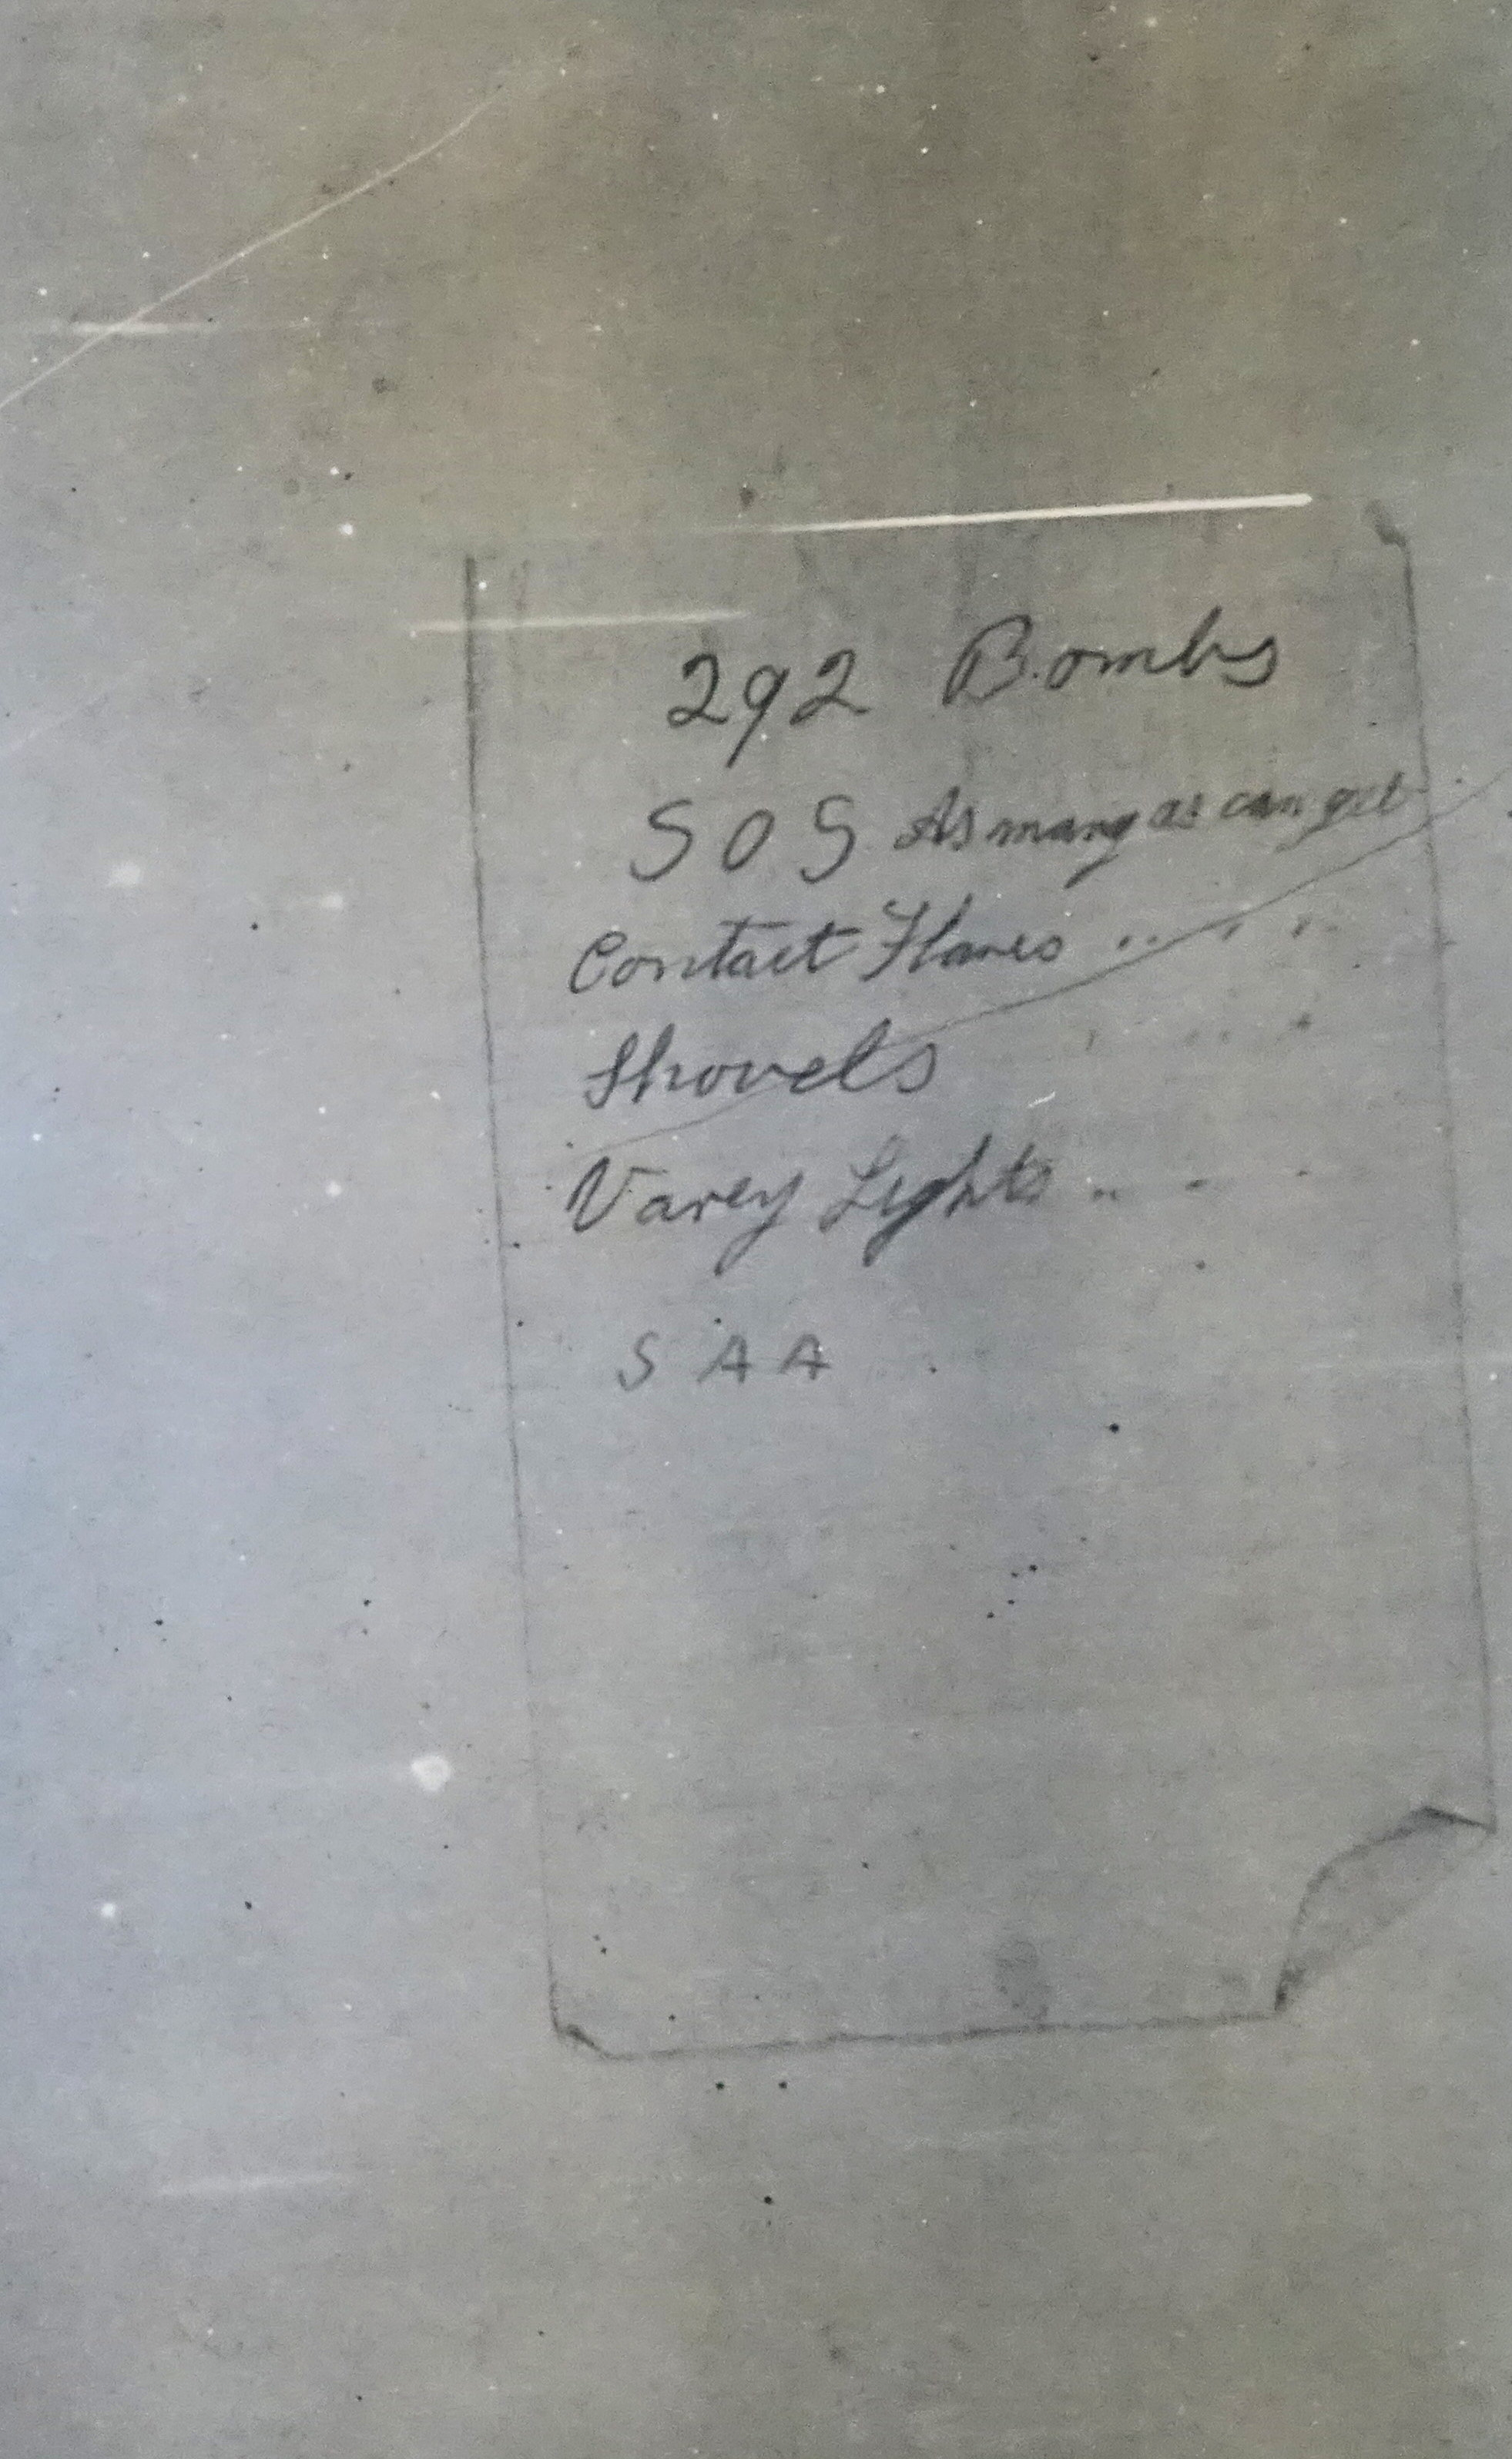 292 Bombs
SOS As many as can get
Contact Flares " " " "
Shovels " " " "
Varey Lights " " "
SAA